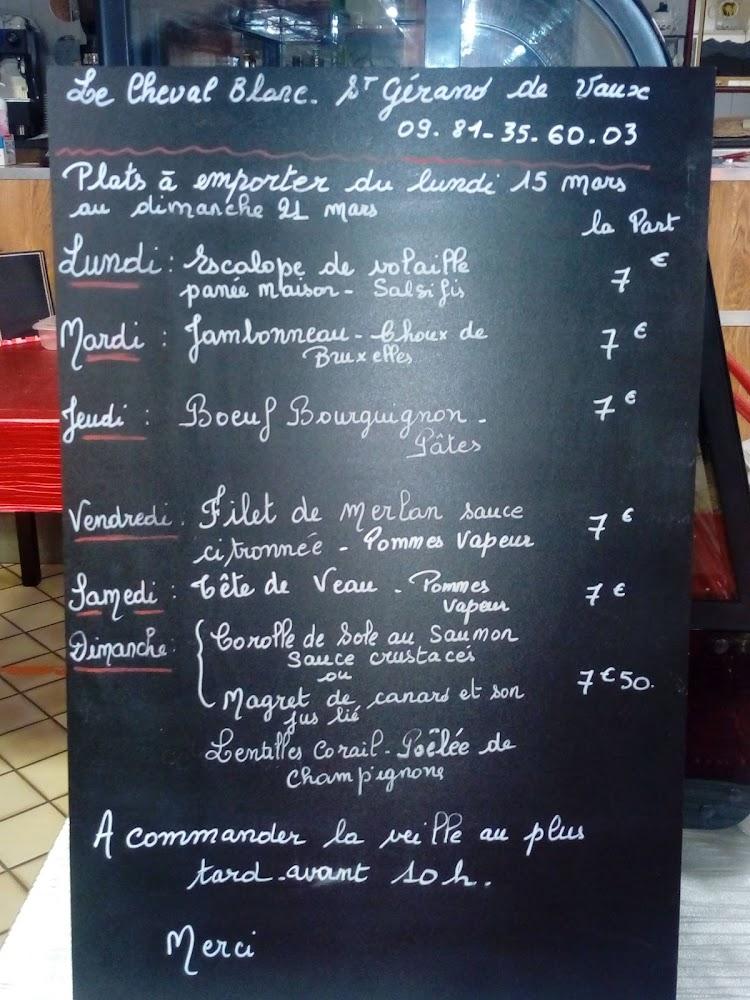 Le Cheval Blanc. St Gérand de Vaux
09.81-35.60.03
Plats à emporter du lundi 15 mars
au dimanche 21 mars
la Part
Lundi : Escalope de volaille
panée maison - Salsifis 7 €
Mardi : Jambonneau - Choux de
Bruxelles 7 €
Jeudi : Boeuf Bourguignon -
Pâtes 7 €
Vendredi : Filet de Merlan sauce
citronnée - Pommes Vapeur 7 €
Samedi : Tête de Veau - Pommes
Vapeur 7 €
Dimanche : Corolle de Sole au Saumon
Sauce crustacés
ou
Magret de canard et son
jus lié 7 € 50.
Lentilles Corail - Poêlée de
champignons
A commander la veille au plus
tard - avant 10 h.
Merci